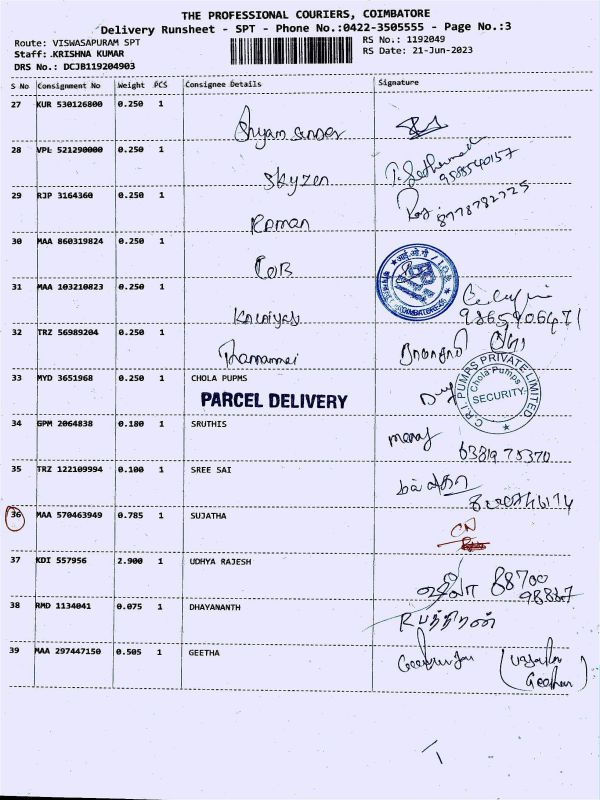 THE PROFESSIONAL COURIERS, COIMBATORE
Delivery Runsheet - SPT - Phone No.:0422-3505555 - Page No.:3
Route: VISWASAPURAM SPT
RS No.: 1192049
Staff: .KRISHNA KUMAR
RS Date: 21-Jun-2023
DRS No.: DCJB119204903
S No Consignment No Weight PCS Consignee Details Signature
27 KUR 530126800 0.250 1
Shyam Sunder
28 VPL 521290000 0.250 1
Skyzen
9588540157
29 RJP 3164360 0.250 1
8778782725
Raman
30 MAA 860319824 0.250 1
IOB
31 MAA 103210823 0.250 1
9865906471
32 TRZ 56989204 0.250 1
33 MYD 3651968 0.250 1 CHOLA PUPMS
PARCEL DELIVERY
C.R.I. PUMPS PRIVATE LIMITED
Chola Pumps
SECURITY
34 GPM 2064838 0.180 1 SRUTHIS
manoj
35 TRZ 122109994 0.100 1 SREE SAI
36 MAA 570463949 0.785 1 SUJATHA
CN
37 KDI 557956 2.900 1 UDHYA RAJESH
88700
98867
38 RMD 1134041 0.075 1 DHAYANANTH
39 MAA 297447150 0.505 1 GEETHA